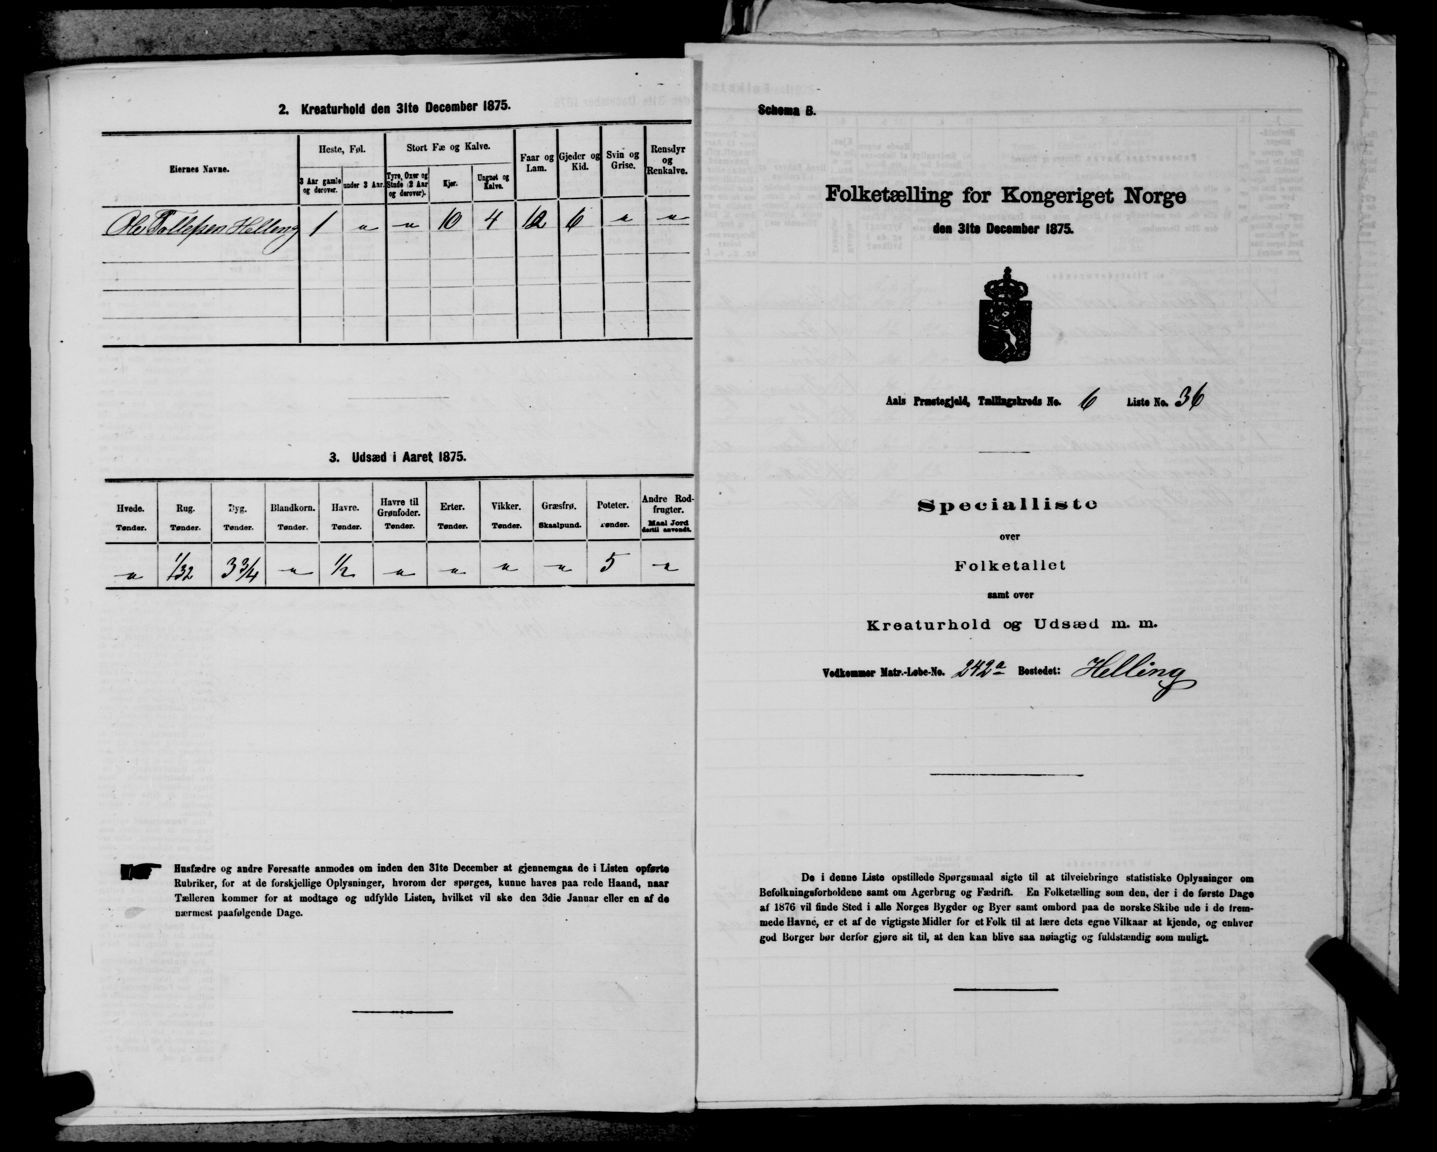 2. Kreaturhold den 31te December 1875.
Eiernes Navne. Heste, Føl. Stort Fæ og Kalve. Faar og Lam. Gjeder og Kid. Svin og Grise. Rensdyr og Renkalve.
3 Aar gamle og derover. under 3 Aar. Tyre, Oxer og Stude (2 Aar og derover). Kjør. Ungnet og Kalve.
Ole Tollefsen Helling 1 " " 10 4 12 6 " "
3. Udsæd i Aaret 1875.
Hvede. Rug. Byg. Blandkorn. Havre. Havre til Grønfoder. Erter. Vikker. Græsfrø. Poteter. Andre Rodfrugter.
Tønder. Tønder. Tønder. Tønder. Tønder. Tønder. Tønder. Tønder. Skaalpund. Tønder. Maal Jord dertil anvendt.
" 1/32 3 3/4 " 1/2 " " " " 5 "
Husfædre og andre Foresatte anmodes om inden den 31te December at gjennemgaa de i Listen opførte
Rubriker, for at de forskjellige Oplysninger, hvorom der spørges, kunne haves paa rede Haand, naar
Tælleren kommer for at modtage og udfylde Listen, hvilket vil ske den 3die Januar eller en af de
nærmest paafølgende Dage.
Schema B.
Folketælling for Kongeriget Norge
den 31te December 1875.
Aals Præstegjeld, Tællingskreds No. 6 Liste No. 36
Specialliste
over
Folketallet
samt over
Kreaturhold og Udsæd m. m.
Vedkommer Matr.-Løbe-No. 242a Bostedet: Helling
De i denne Liste opstillede Spørgsmaal sigte til at tilveiebringe statistiske Oplysninger om
Befolkningsforholdene samt om Agerbrug og Fædrift. En Folketælling som den, der i de første Dage
af 1876 vil finde Sted i alle Norges Bygder og Byer samt ombord paa de norske Skibe ude i de frem-
mede Havne, er et af de vigtigste Midler for et Folk til at lære dets egne Vilkaar at kjende, og enhver
god Borger bør derfor gjøre sit til, at den kan blive saa nøiagtig og fuldstændig som muligt.